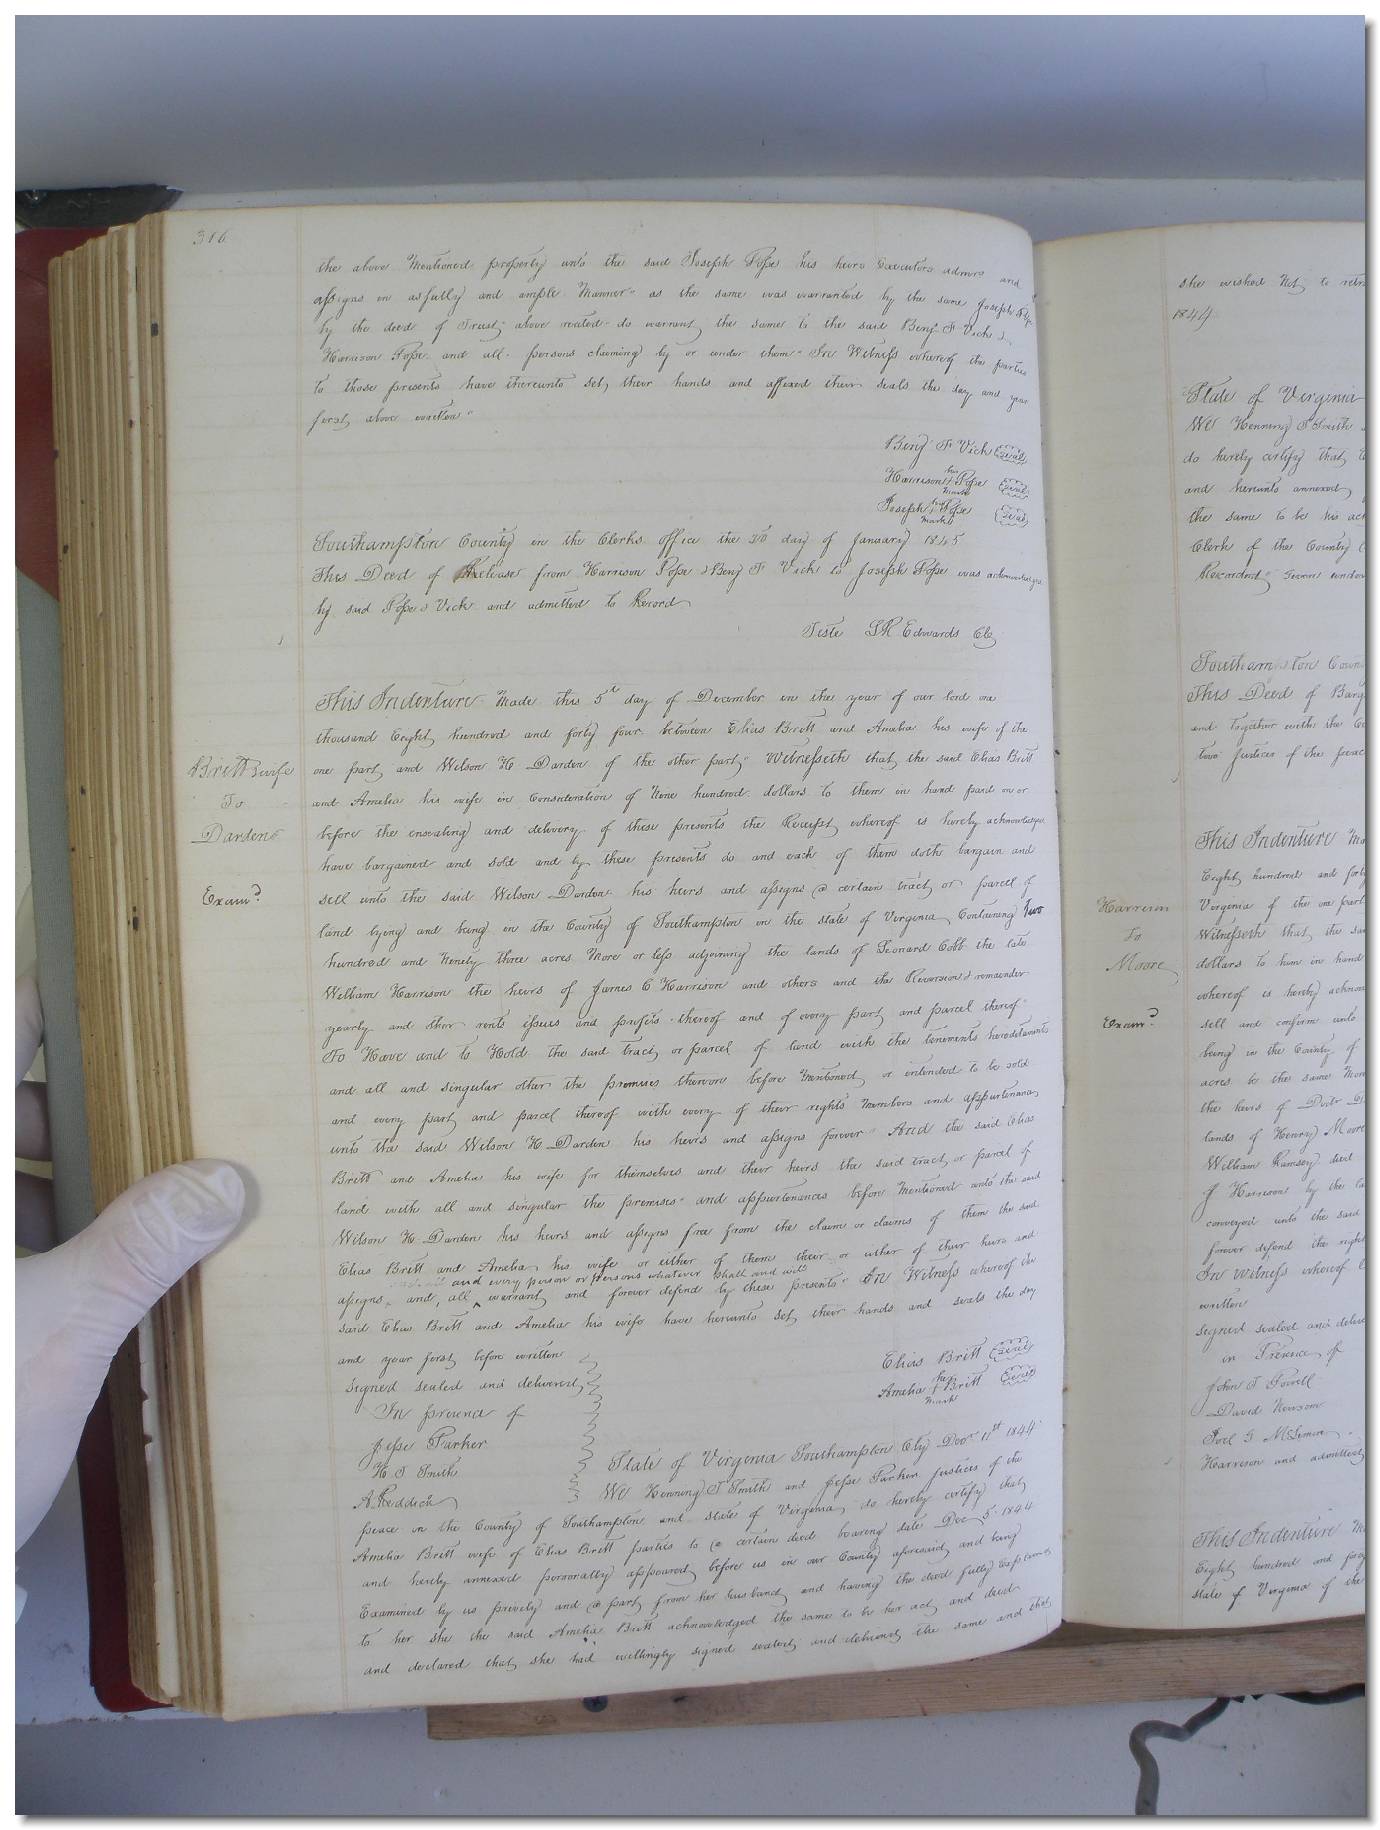 316
the above Mentioned property unto the said Joseph Pope his heirs Executors admrs and
assigns in as fully and ample Manner as the same was warranted by the same Joseph Pope
by the deed of Trust above recited do warrant the same to the said Benj F Vick &
Harrison Pope and all persons claiming by or under them In Witness whereof the parties
to those presents have thereunto set their hands and affixed their seals the day and year
first above written
Benj F Vick Seal
Harrison his Pope Seal
mark
Joseph his Pope Seal
mark
Southampton County in the Clerks Office the day of January 1845
This Deed of Release from Harrison Pope & Benj F Vick to Joseph Pope was acknowledged
by said Pope & Vick and admitted to Record
Teste LR Edwards Clk
This Indenture Made this 5th day of December in the year of our lord one
thousand Eight hundred and forty four between Elias Britt and Amelia his wife of the
Britt & wife
To
Darden
Exam.d
one part and Wilson H Darden of the other part Witnesseth that the said Elias Britt
and Amelia his wife in Consideration of Nine hundred dollars to them in hand paid on or
before the ensealing and delivery of these presents the Receipt whereof is hereby acknowledged
have bargained and sold and by these presents do and each of them doth bargain and
sell unto the said Wilson Darden his heirs and assigns a certain tract or parcel of
land lying and being in the County of Southampton in the state of Virginia Containing two
hundred and Ninety three acres More or less adjoining the lands of Leonard Cobb the late
William Harrison the heirs of James C Harrison and others and the Reversion & remainder
yearly and other rents issues and profits thereof and of every part and parcel thereof
To Have and to Hold the said tract or parcel of land with the tenements hereditaments
and all and singular other the premises thereon before Mentioned or intended to be sold
and every part and parcel thereof with every of their rights Members and appurtenances
unto the said Wilson H Darden his heirs and assigns forever And the said Elias
Britt and Amelia his wife for themselves and their heirs the said tract or parcel of
land with all and singular the premises and appurtenances before Mentioned unto the said
Wilson H Darden his heirs and assigns free from the claim or claims of them the said
Elias Britt and Amelia his wife or either of them their or either of their heirs and
and every person or persons whatever shall and will
assigns and all warrant and forever defend by these presents In Witness whereof the
said Elias Britt and Amelia his wife have hereunto set their hands and seals the day
and year first before written
Signed sealed and delivered
In presence of
Jesse Parker
H T Smith
A Reddick
Elias Britt Seal
Amelia her Britt Seal
mark
State of Virginia Southampton Cty Decr 11th 1844
We Henning T Smith and Jesse Parker Justices of the
peace in the County of Southampton and state of Virginia do hereby certify that
Amelia Britt wife of Elias Britt parties to a certain deed bearing date Dec 5 1844
and hereby annexed personally appeared before us in our County aforesaid and being
Examined by us privily and a part from her husband and having the deed fully Explained
to her she the said Amelia Britt acknowledged the same to be her act and deed
and declared that she had willingly signed sealed and delivered the same and that
she wished Not to
1844
State of Virginia
We Henning T Smith
do hereby certify that
and hereunto annexed
the same to be his
Clerk of the County
Recorded Given under
Southampton
This Deed of
and together with the
two Justices of the
Harrison
To
Moore
Exam.d
This Indenture
Eight hundred and
Virginia of the one part
Witnesseth that the
dollars to him in hand
whereof is hereby
sell and confirm unto
being in the County of
acres be the same
the heirs of
lands of Henry Moore
William Ramsey
J Harrison by the
conveyed unto the said
forever defend the right
In Witness whereof
written
signed sealed and
in Presence of
John T
David Newsom
Joel G
Harrison and admitted
This Indenture
Eight hundred and
state of Virginia of the